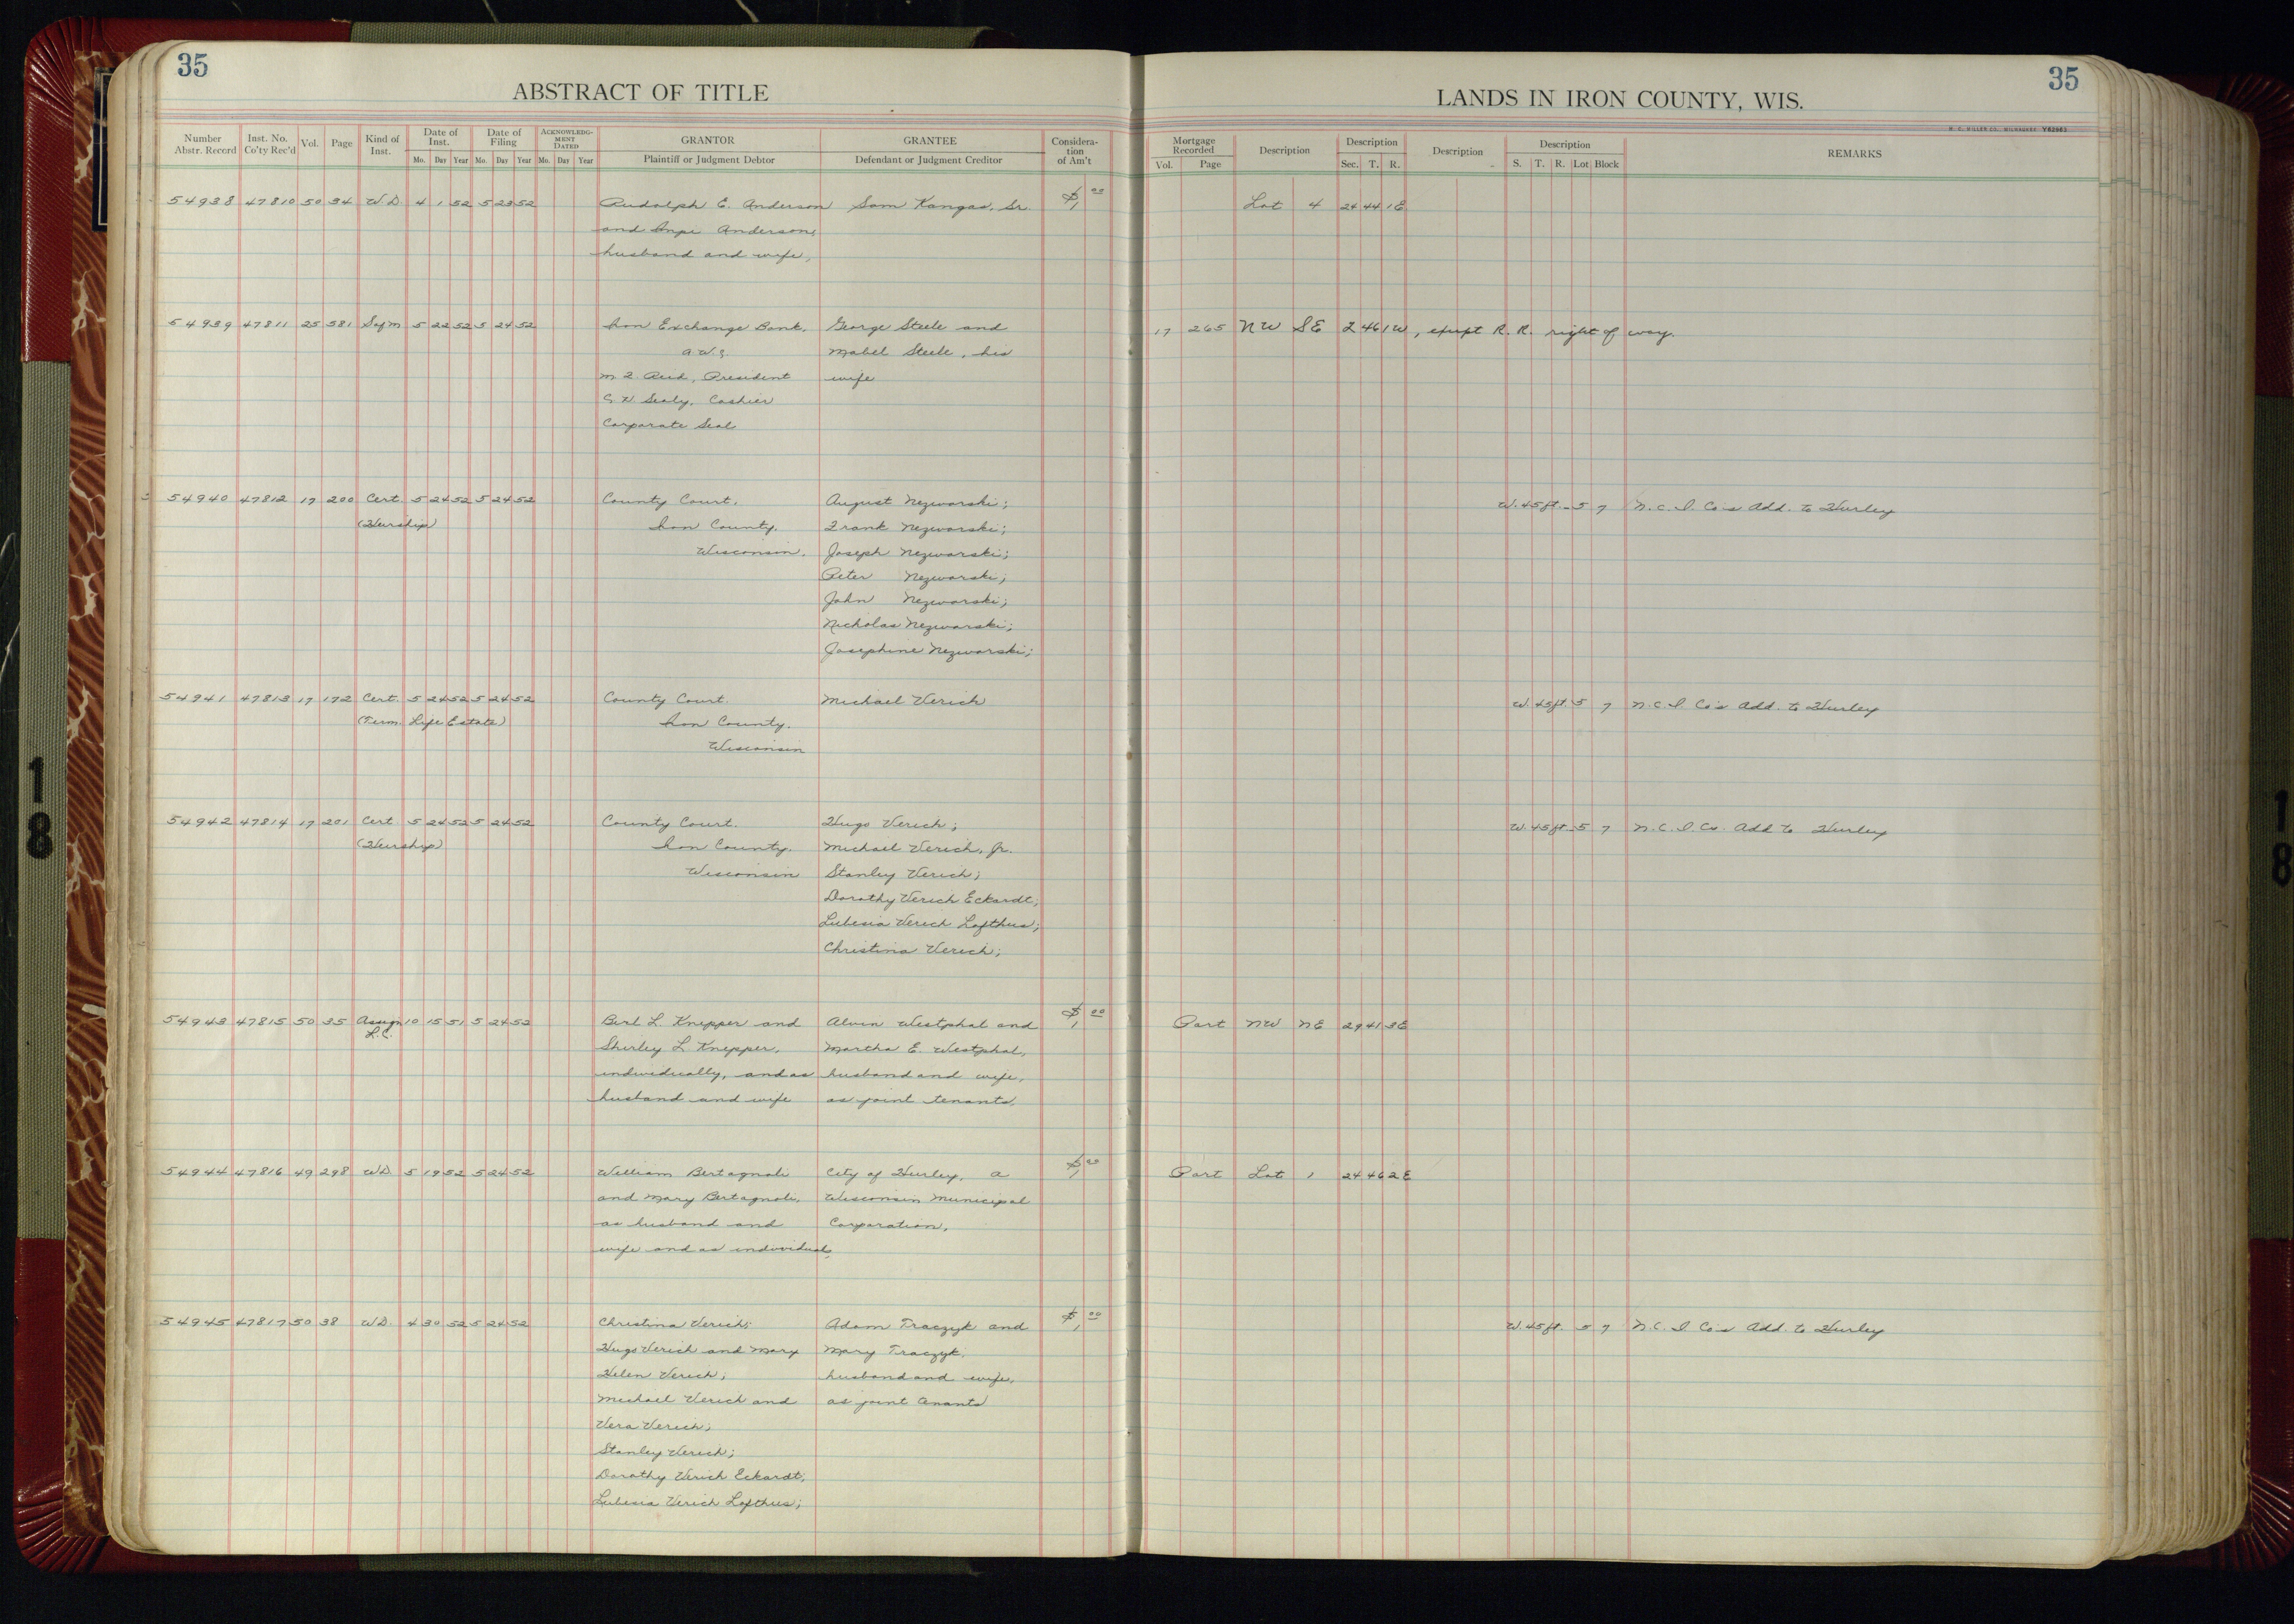 35
35
ABSTRACT OF TITLE
LANDS IN IRON COUNTY, WIS.
H. C. MILLER CO., MILWAUKEE
Number Abstr. Record
Inst. No. Co'ty Rec'd
Vol.
Page
Kind of Inst.
Date of Inst.
Mo. Day Year
Date of Filing
Mo. Day Year
ACKNOWLEDGMENT DATED
Mo. Day Year
GRANTOR
Plaintiff or Judgment Debtor
GRANTEE
Defendant or Judgment Creditor
Consideration of Am't
Mortgage Recorded
Vol. Page
Description
Description
Sec. T. R.
Description
Description
S. T. R. Lot Block
REMARKS
54938 47810 50 34 W.D. 4 1 52 5 23 52 Rudolph E. Anderson Sam Kangas, Sr. $1 00 Lot 4 24 44 1E
and Anderson,
husband and wife,
54939 47811 25 581 Safm 5 22 52 5 24 52 Iron Exchange Bank, George Steele and 17 265 NW SE 2 46 1W, except R.R. right of way.
Mabel Steele, his
President wife
Sealy, Cashier
Corporate Seal
54940 47812 17 200 Cert. 5 24 52 5 24 52 County Court, August Nezworski; W. 45 ft. 5 7 N.C.I. Co's Add. to Hurley
(Heirship) Iron County, Frank Nezworski;
Wisconsin. Joseph Nezworski;
Peter Nezworski;
John Nezworski;
Nicholas Nezworski;
Josephine Nezworski;
54941 47813 17 172 Cert. 5 24 52 5 24 52 County Court. Michael Verich W. 45 ft. 5 7 N.C.I. Co's Add. to Hurley
(Term. Life Estate) Iron County.
Wisconsin
54942 47814 17 201 Cert. 5 24 52 5 24 52 County Court. Hugo Verich; W. 45 ft. 5 7 N.C.I. Co. Add to Hurley
(Heirship) Iron County. Michael Verich, Jr.
Wisconsin Stanley Verich;
Dorothy Verich Eckardt,
Lubesia Verich Lofthus;
Christina Verich;
54943 47815 50 35 Assign 10 15 51 5 24 52 Berl L. Knepper and Alvin Westphal and $1 00 Part NW NE 29 41 3E
L.C. Shirley L. Knepper, Martha E. Westphal,
individually, and as husband and wife,
husband and wife as joint tenants.
54944 47816 49 298 WD. 5 19 52 5 24 52 William Bertagnoli City of Hurley, a $1 00 Part Lot 1 24 46 2E
and Mary Bertagnoli, Wisconsin Municipal
as husband and Corporation,
wife and as individuals,
54945 47817 50 38 WD. 4 30 52 5 24 52 Christina Verich; Adam Traczyk and $1 00 W. 45 ft. 5 7 N.C.I. Co's Add. to Hurley
Hugo Verich and Mary Mary Traczyk,
Helen Verich; husband and wife,
Michael Verich and as joint tenants
Vera Verich;
Stanley Verich;
Dorothy Verich Eckardt;
Lubesia Verich Lofthus;
18
18